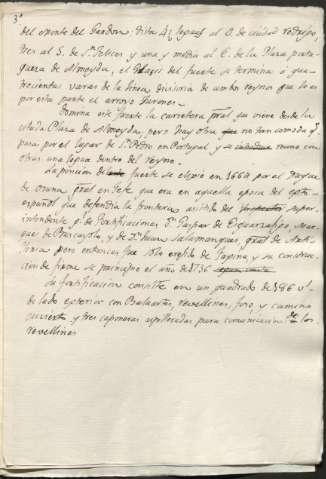 3ª
del oriente del Guardon: dista 4½ leguas al O. de Ciudad Rodrigo,
tres al S. de Sn. Felices y una y media al E. de la Plaza portu-
guesa de Almeyda, el del fuerte se termina a qua-
trecientas varas de la linea divisoria de ambos reynos que lo es
por esta parte el arroyo Turones.
Domina este fuerte la carretera gral. que viene desde la
citada Plaza de Almeyda, pero hay otra no tan comoda q.
pasa por el lugar de Sn. Pedro en Portugal, y se reune con
otras una legua dentro del reyno.
La posicion de fuerte se eligió en 1664 por el Duque
de Osuna gral. en Gefe que era en aquella epoca del egto.
español que defendia la frontera asistido del super-
intendente gl. de Fortificaciones Dn. Gaspar de Squarzafigo, Mar-
ques de Buscayolo, y de Dn. Juan Salamanques, gral. de Arti-
lleria pero entonces fue solo erigido de fagina, y su construc-
cion de firme se principio el año de 1736
La fortificacion consiste en un quadrado de 186 vs.
de lado exterior con Baluartes, revellines, foso, y camino
cuvierto y tres caponeras aspilleradas para comunicacion de los
revellines